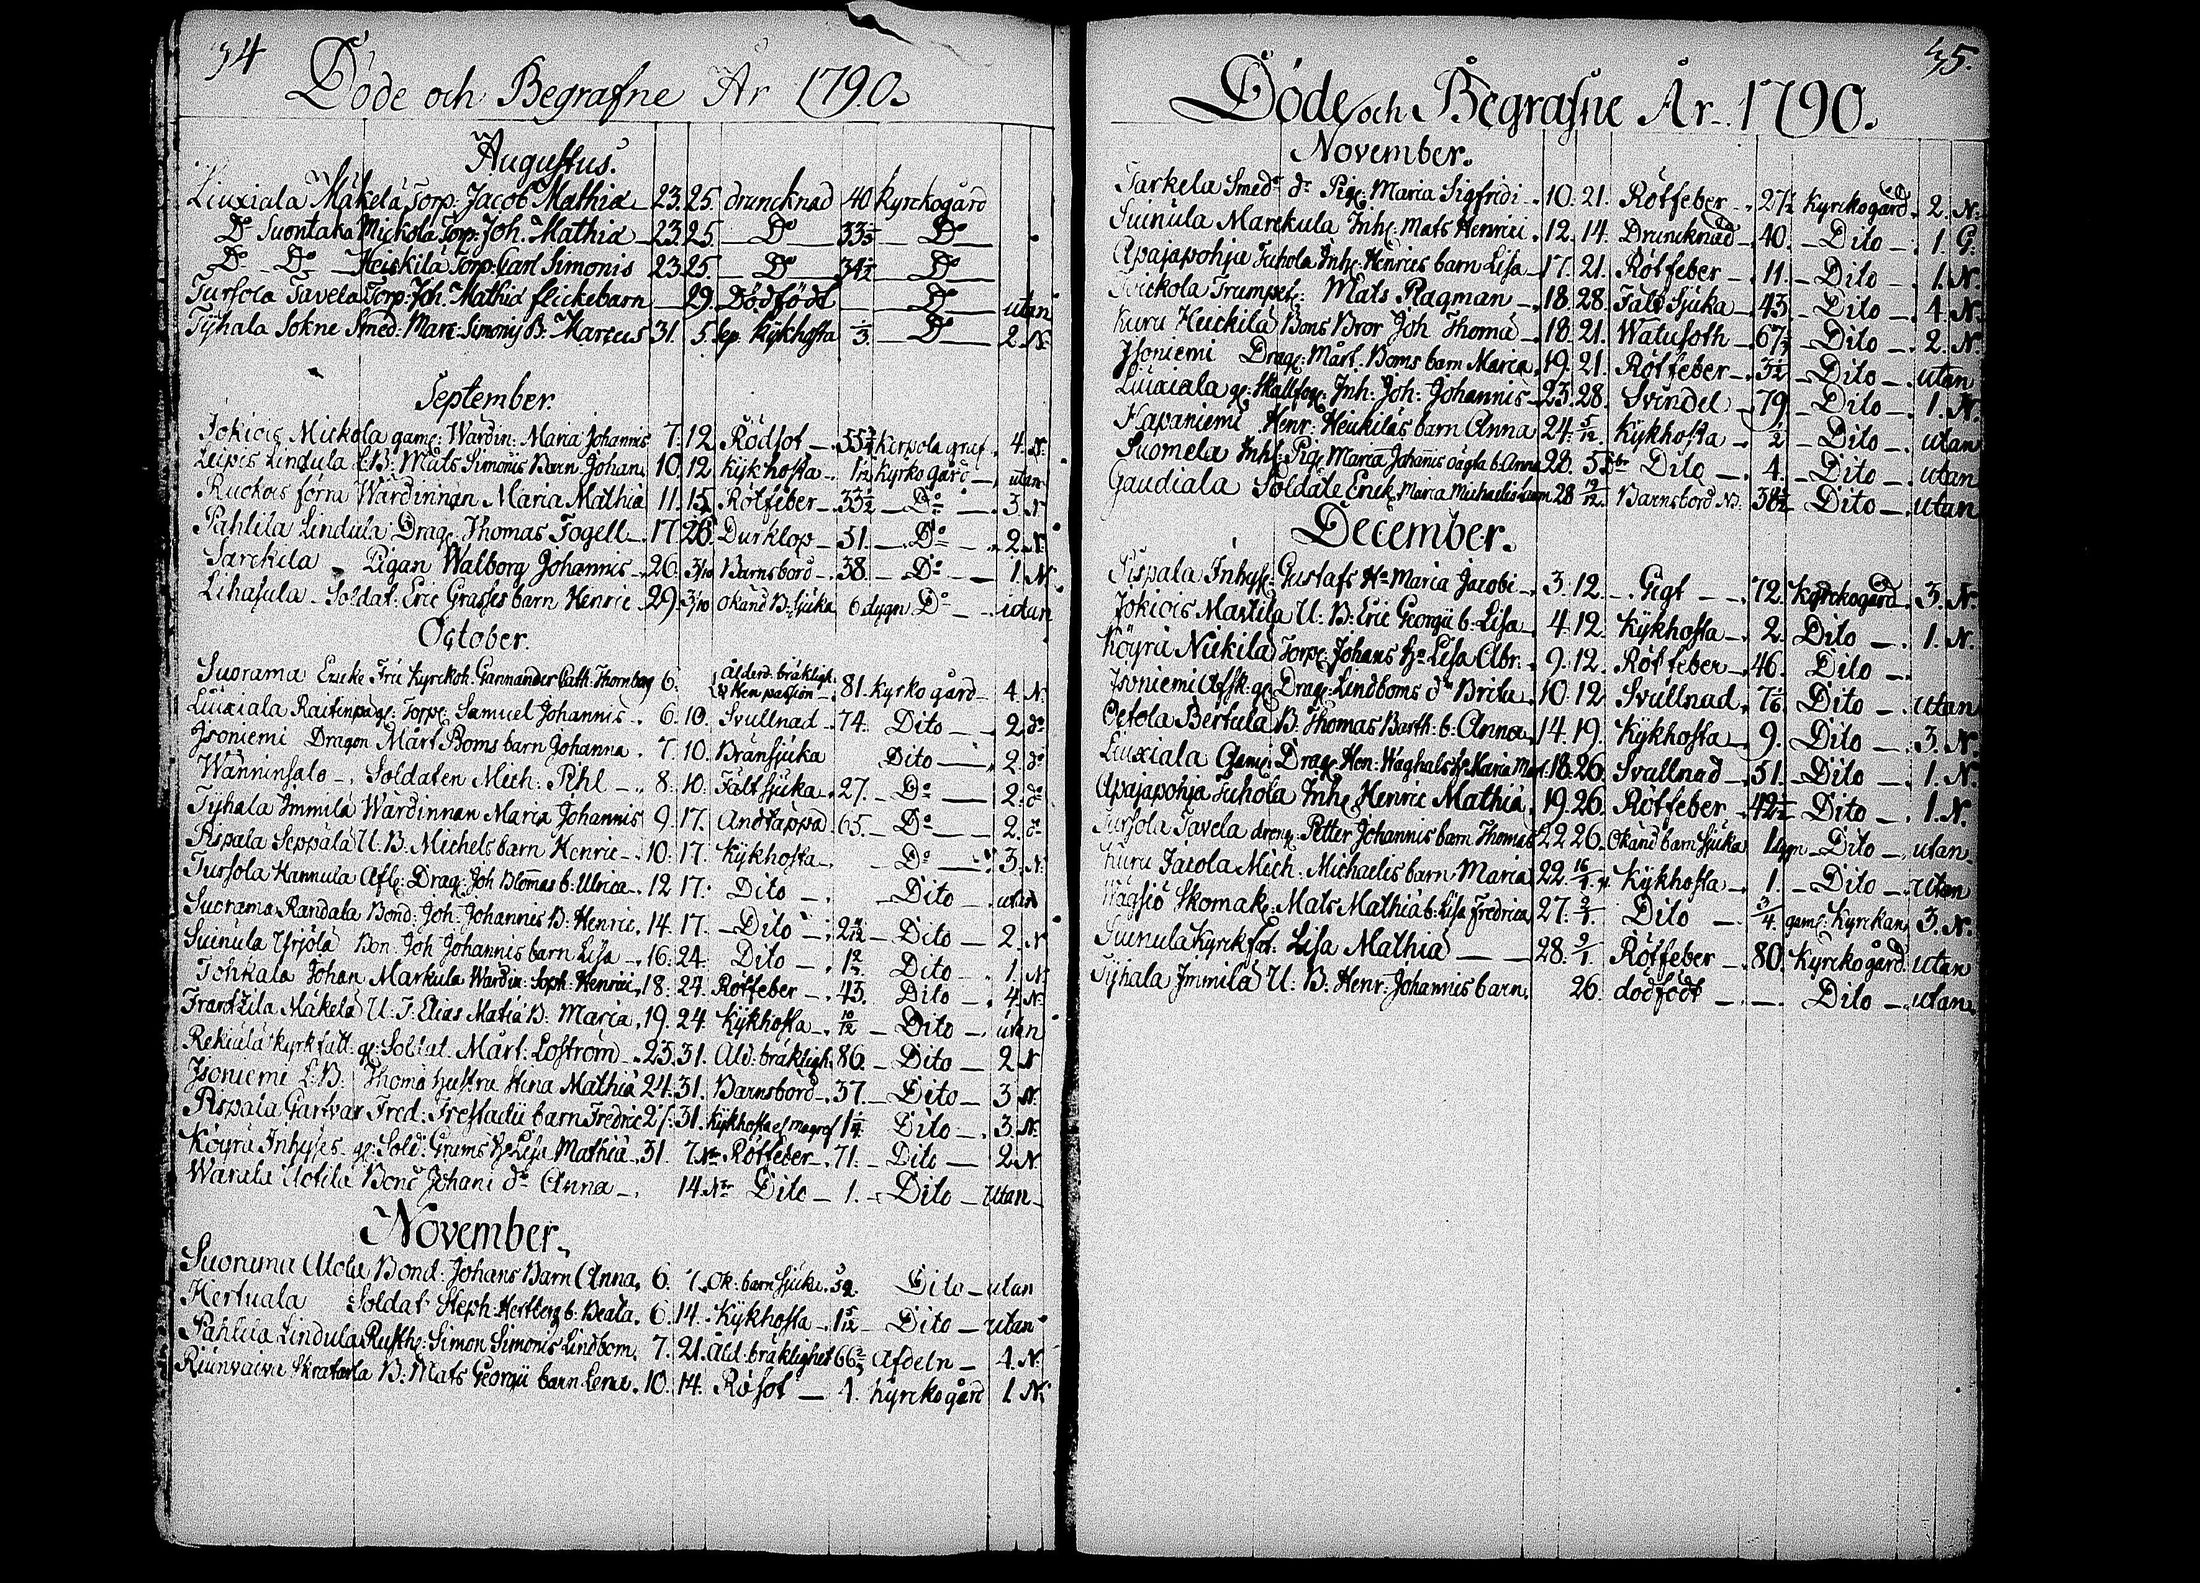 34
Döde och Begrafne År 1790.
Augustus.
Liuxiala Mäkelä Torp: Jacob Mathiæ 23. 25. druncknad 40 Kyrckogård
Do Suontaka Mickola Torp: Joh. Mathiæ 23 25. Do 33 Do
Do Do Heickilä Torp: Carl Simonis 23 25. Do 34 1/2 Do
Tursola Tavela Torp: Joh. Mathiæ flickebarn 29. Dödfödt Do utan
Tyhala Sokne Smed: Marc: Simonis B: Marcus 31. 5. Kykhosta 1/3 Do 2. N.
September.
Jokiois Mickola gamc: Wärdin: Maria Johannis 7. 12. Rödsot 55 graf 4. N.
Leipis Lindula Mats Simonis Barn Johan. 10. 12 Kykhosta 1 Kyrkogård utan
Ruckois förra Wärdinnan Maria Mathiæ 11. 15. Rötfeber 33 1/2 Do 3. N
Pahlila Lindula Drag: Thomas Fogell 17. 26. Durklop 51. Do 2. N.
Sarckila Pigan Walborg Johannis 26. 3/10 Barnsbörd 38. Do 1. N.
Lihasula Soldat: Eric Grasses barn Henric 29. 3/10 okänd B: sjuka 6 dygn Do utan
October.
Suorama Encke Fru Kyrckoh: Gannander Cath. Thornberg 6. Ålderd. bräkligh: & Sten passion 81. Kyrko gård 4. N.
Liuxiala Raitinpä gc: Torpe Samuel Johannis 6. 10. Svullnad 74. Dito 2. do
Isoniemi Dragon Mårt Boms barn Johanna 7. 10. Bränsjuka Dito 2. do
Wänninsalo Soldaten Mich: Pihl 8. 10. Fältsjuka 27. Do 2. do
Tyhala Immilä Wärdinnan Maria Johannis 9. 17. Andtäppa 65. Do 2. do
Pispala Seppälä U. B. Michels barn Henric 10. 17. Kykhosta Do 3. N
Tursola Hannula Drag: Joh Blomas b: Ulrica 12 17. Dito Dito utan
Suorama Randala Bond: Joh: Johannis B: Henric 14. 17. Dito 2 Dito 2. N
Suinula Yrjölä Bon. Joh Johannis barn Lisa 16. 24. Dito 1 Dito 1. N
Tohkala Johan Markula Wärdin: Soph: Henrici 18. 24. Rötfeber 43. Dito 4. N.
Frantzila Mäkelä U. I. Elias Matiæ B: Maria 19. 24. Kykhosta 10/12 Dito utan
Rekiälä kyrkfatt: gc: Soldat Mårt: Loström 23. 31. Ald: bräkligh: 86. Dito 2 N
Isoniemi L: B: Thomæ hustru Stina Mathiæ 24. 31. Barnsbörd 37. Dito 3 N.
Pispala Garfvar Fred: barn Fredric 27. 31. Kykhosta 1 1/4 Dito 3. N.
Köyrä Inhyses gc: Sold: Grums H: Lisa Mathiæ 31. 7 Nbr Rötfeber 71. Dito 2 N.
Warala Uotila Bond Johani dr Anna 14. Nbr Dito 1. Dito utan
November.
Suorama Uotila Bond: Johans Barn Anna 6. 7. Ok: barnsjuka Dito utan
Hertuala Soldat Steph: Hertberg b: Beata 6. 14. Kykhosta 1 5/12 Dito utan
Pahlila Lindula Rusthc: Simon Simonis Lindbom. 7. 21. Ald: bräklighet 66 Afdeln 4. N.
Riunvaiva Skratarla B: Mats Georgii barn Lena 10. 14. Rösot 1. Kyrckogård 1. N.
35.
Döde och Begrafne År 1790.
November.
Tarkela Smeds dr Pigc: Maria Sigfridi 10. 21. Rötfeber 27 1/2 Kyrckogård 2. N.
Suinula Marckula Inhc: Mats Henrici 12. 14. Druncknad 40. Dito 1. G.
Apajapohja Juhola Inhc: Henrics barn Lisa 17. 21. Rötfeber 11. Dito 1. N.
Trumpet: Mats Ragman 18. 28. Fält Sjuka 43. Dito 4. N.
Kuru Heickilä Bons Bror Joh Thomæ 18. 21. Watusoth 67 Dito 2. N.
Isoniemi Drag: Mårt Boms barn Maria 19. 21. Rötfeber 3 1/2 Dito utan
Liuxiala gc: Skallfogc: Inh: Joh: Johannis 23. 28. Svindel 79. Dito 1. N.
Hapaniemi Henr: Heickiläs barn Anna 24. 5/12. Kykhosta 1/2 Dito utan
Suomela Inhc: Pigc Maria Johannis oägta b: Anna 28. 5 Dito 4. Dito utan
Gaudiala Soldate Enck: Maria Michaelis 28 19/12. Barnsbörd 38 1/2 Dito utan
December.
Pispala Inhyss: Gustafs Ha Maria Jacobi 3. 12. Gigt 72. Kyrckogård 3. N.
Jokiois Mattila U. B: Eric Georgii b: Lisa 4. 12. Kykhosta 2. Dito 1. N.
Köyrä Nickilä Torpc: Johans H: Lisa Abr: 9. 12. Rötfeber 46. Dito
Isoniemi Afsk: gc Drag: Lindboms dr Brita 10. 12 Svullnad 7 Dito utan
Oetola Bertula B: Thomas Barth: b: Anna 14. 19. Kykhosta 9. Dito 3. N.
Liuxiala Gamc: Drag: Hen: Waghals H: Maria 18. 26. Svullnad 51. Dito 1. N.
Apajapohja Juhola Inhc Henric Mathiæ 19. 26. Rötfeber 42 1/2 Dito 1. N.
Tursola Tavela dreng: Petter Johannis barn Thomas 22 26. Okänd barn Sjuka 1 dygn Dito utan
Kuru Jacola Mich. Michaelis barn Maria 22. 16/1. Kykhosta 1. Dito utan
Wägsiö Skomakc: Mats Mathiæ b: Lisa Fredrica 27. 2/1. Dito 3/4. gamc: Kyrckan 3. N.
Suinula Kyrckfat: Lisa Mathiæ 28. 9/1. Rötfeber 80. Kyrckogård utan
Tyhala Immilä U: B: Henr: Johannis barn. 26. dödfödt Dito utan